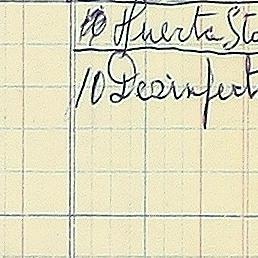 10 Huerta Sta
10 Dezinfect